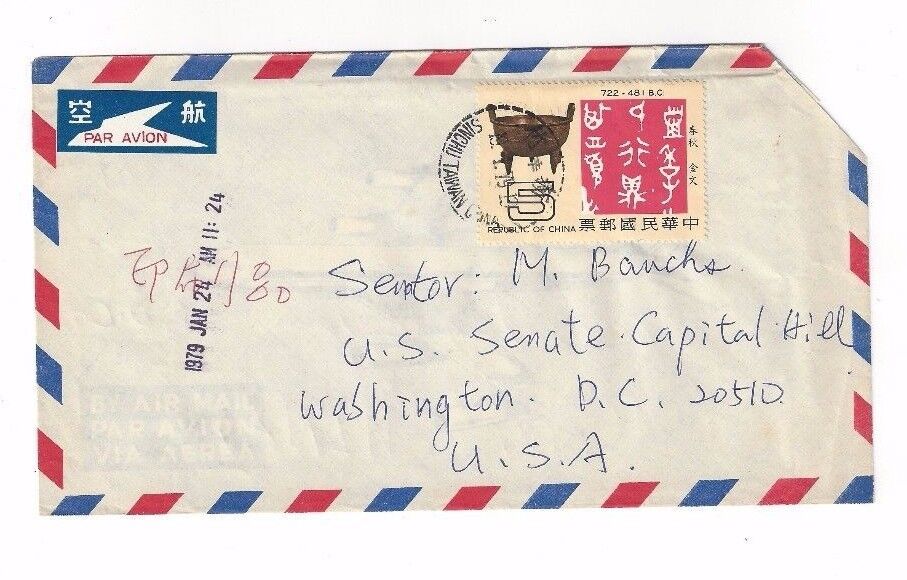 航空
PAR AVION
1979 JAN 24 AM 11:24
印刷品
722-481 B.C.
春秋 金文
5
REPUBLIC OF CHINA
中華民國郵票
SINCHU TAIWAN
Senator: M. Bauchs.
U.S. Senate. Capital Hill
Washington. D.C. 20510
U.S.A.
AIR MAIL
PAR AVION